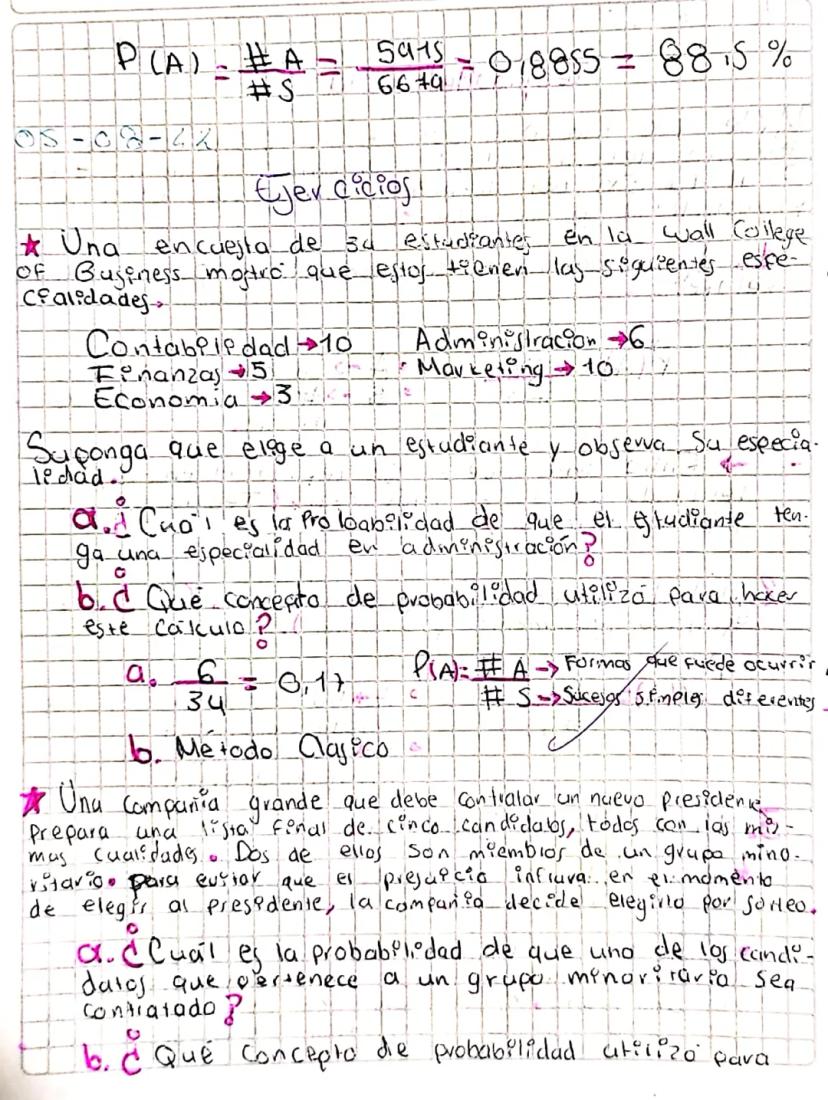 P(A) = #A / #S = 5915 / 6679 = 0,8855 = 88.5 %
Ejercicios
★ Una encuesta de 34 estudiantes en la Wall College
of Business mostró que estos tienen las siguientes espe-
cialidades.
Contabilidad → 10 Administracion → 6
Finanzas → 5 Marketing → 10
Economia → 3
Suponga que elige a un estudiante y observa su especia-
lidad.
a. ¿Cuál es la Probabilidad de que el estudiante ten-
ga una especialidad en administración?
b. ¿Qué concepto de probabilidad utilizó para hacer
este cálculo?
a. 6 / 34 = 0,17 P(A) = #A → Formas que puede ocurrir A
#S → Sucesos simples diferentes
b. Método Clasico
★ Una compañia grande que debe contratar un nuevo presidente,
prepara una lista final de cinco candidatos, todos con las mis-
mas cualidades. Dos de ellos son miembros de un grupo mino-
ritario. para evitar que el prejuicio influya en el momento
de elegir al presidente, la compañia decide elegirlo por sorteo.
a. ¿Cuál es la probabilidad de que uno de los candi-
datos que pertenece a un grupo minoritario sea
contratado?
b. ¿Qué concepto de probabilidad utilizó para